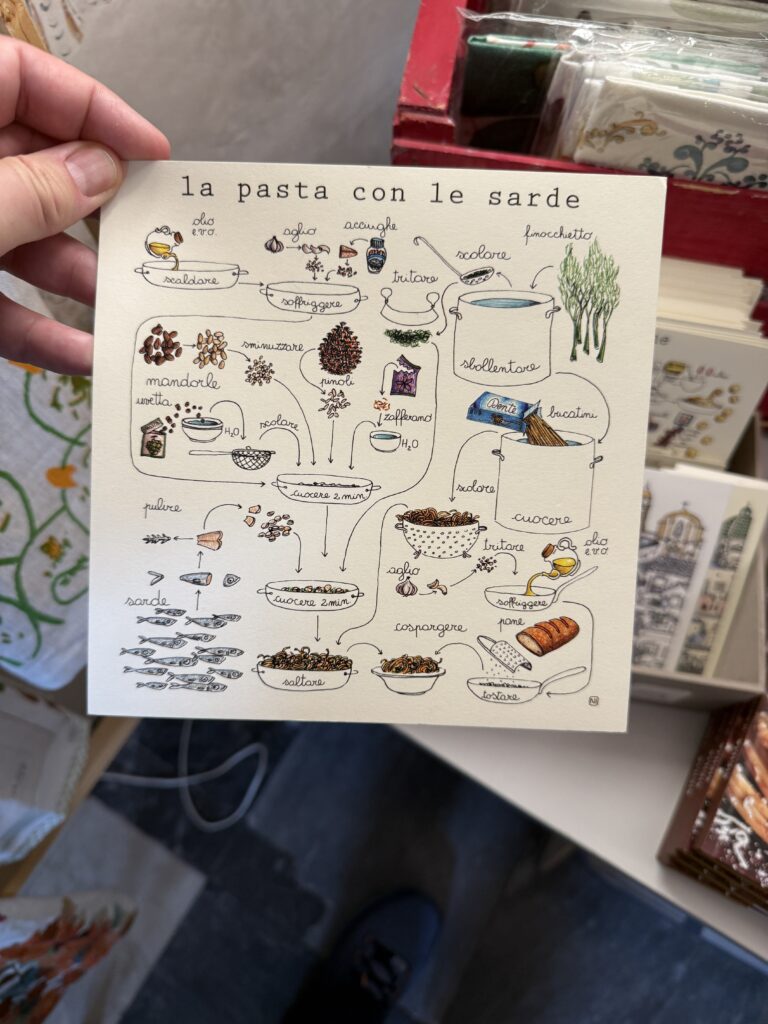 la pasta con le sarde
olio
e.v.o.
aglio
acciughe
scaldare
soffriggere
tritare
scolare
finocchietto
sbollentare
mandorle
sminuzzare
pinoli
zafferano
H₂O
uvetta
H₂O
scolare
cuocere 2 min
Dente
bucatini
scolare
cuocere
pulire
sarde
cuocere 2 min
aglio
tritare
olio
e.v.o.
soffriggere
saltare
cospargere
pane
tostare